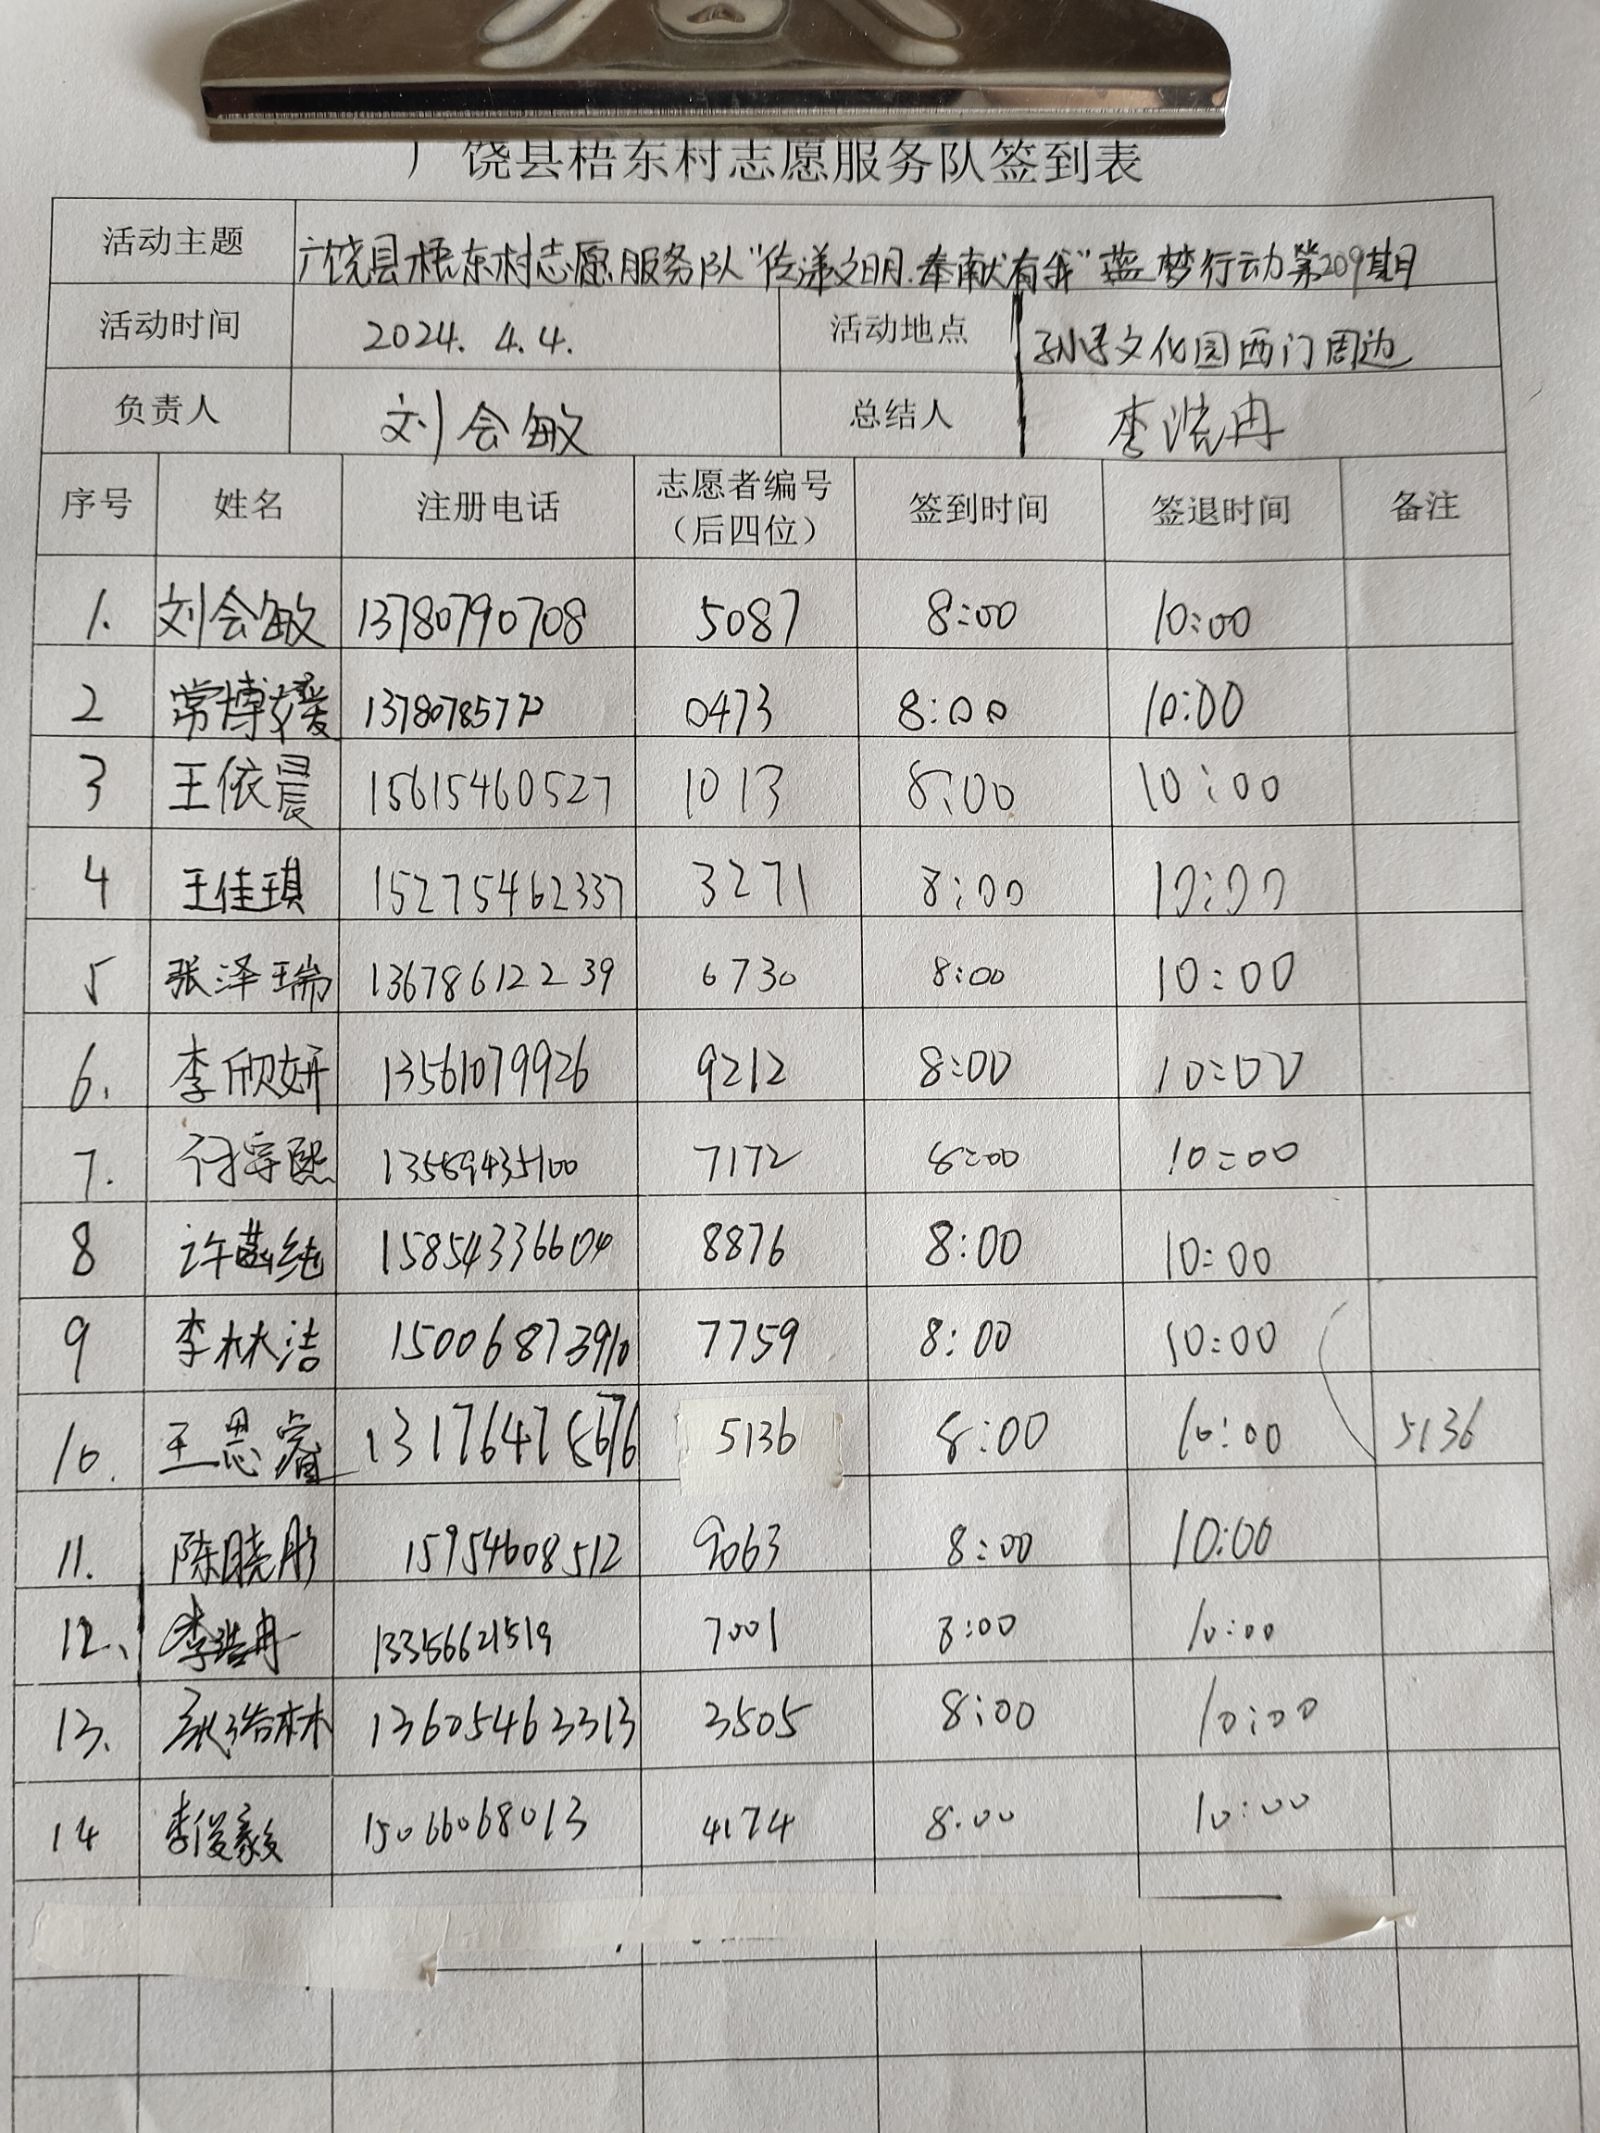 广饶县梧东村志愿服务队签到表
活动主题 广饶县梧东村志愿服务队“传递文明.奉献有我”蓝梦行动第209期
活动时间 2024. 4.4. 活动地点 孙子文化园西门周边
负责人 刘会敏 总结人 李浩冉
序号 姓名 注册电话 志愿者编号（后四位） 签到时间 签退时间 备注
1. 刘会敏 13780790708 5087 8:00 10:00
2 常博媛 0473 8:00 10:00
3 王依晨 15615460527 1013 8:00 10:00
4 王佳琪 15275462337 3271 8:00 10:00
5 张泽瑞 13678612239 6730 8:00 10:00
6. 李欣妍 13561079926 9212 8:00 10:00
7. 付宇熙 13589435100 7172 8:00 10:00
8 许菡纯 15854336604 8876 8:00 10:00
9 李林洁 15006873910 7759 8:00 10:00
10. 王思睿 5136 8:00 10:00 5136
11. 陈晓彤 15954608512 9063 8:00 10:00
12、 李浩冉 13356621519 7001 8:00 10:00
13. 13605463313 3505 8:00 10:00
14 李俊毅 15066068013 4174 8:00 10:00